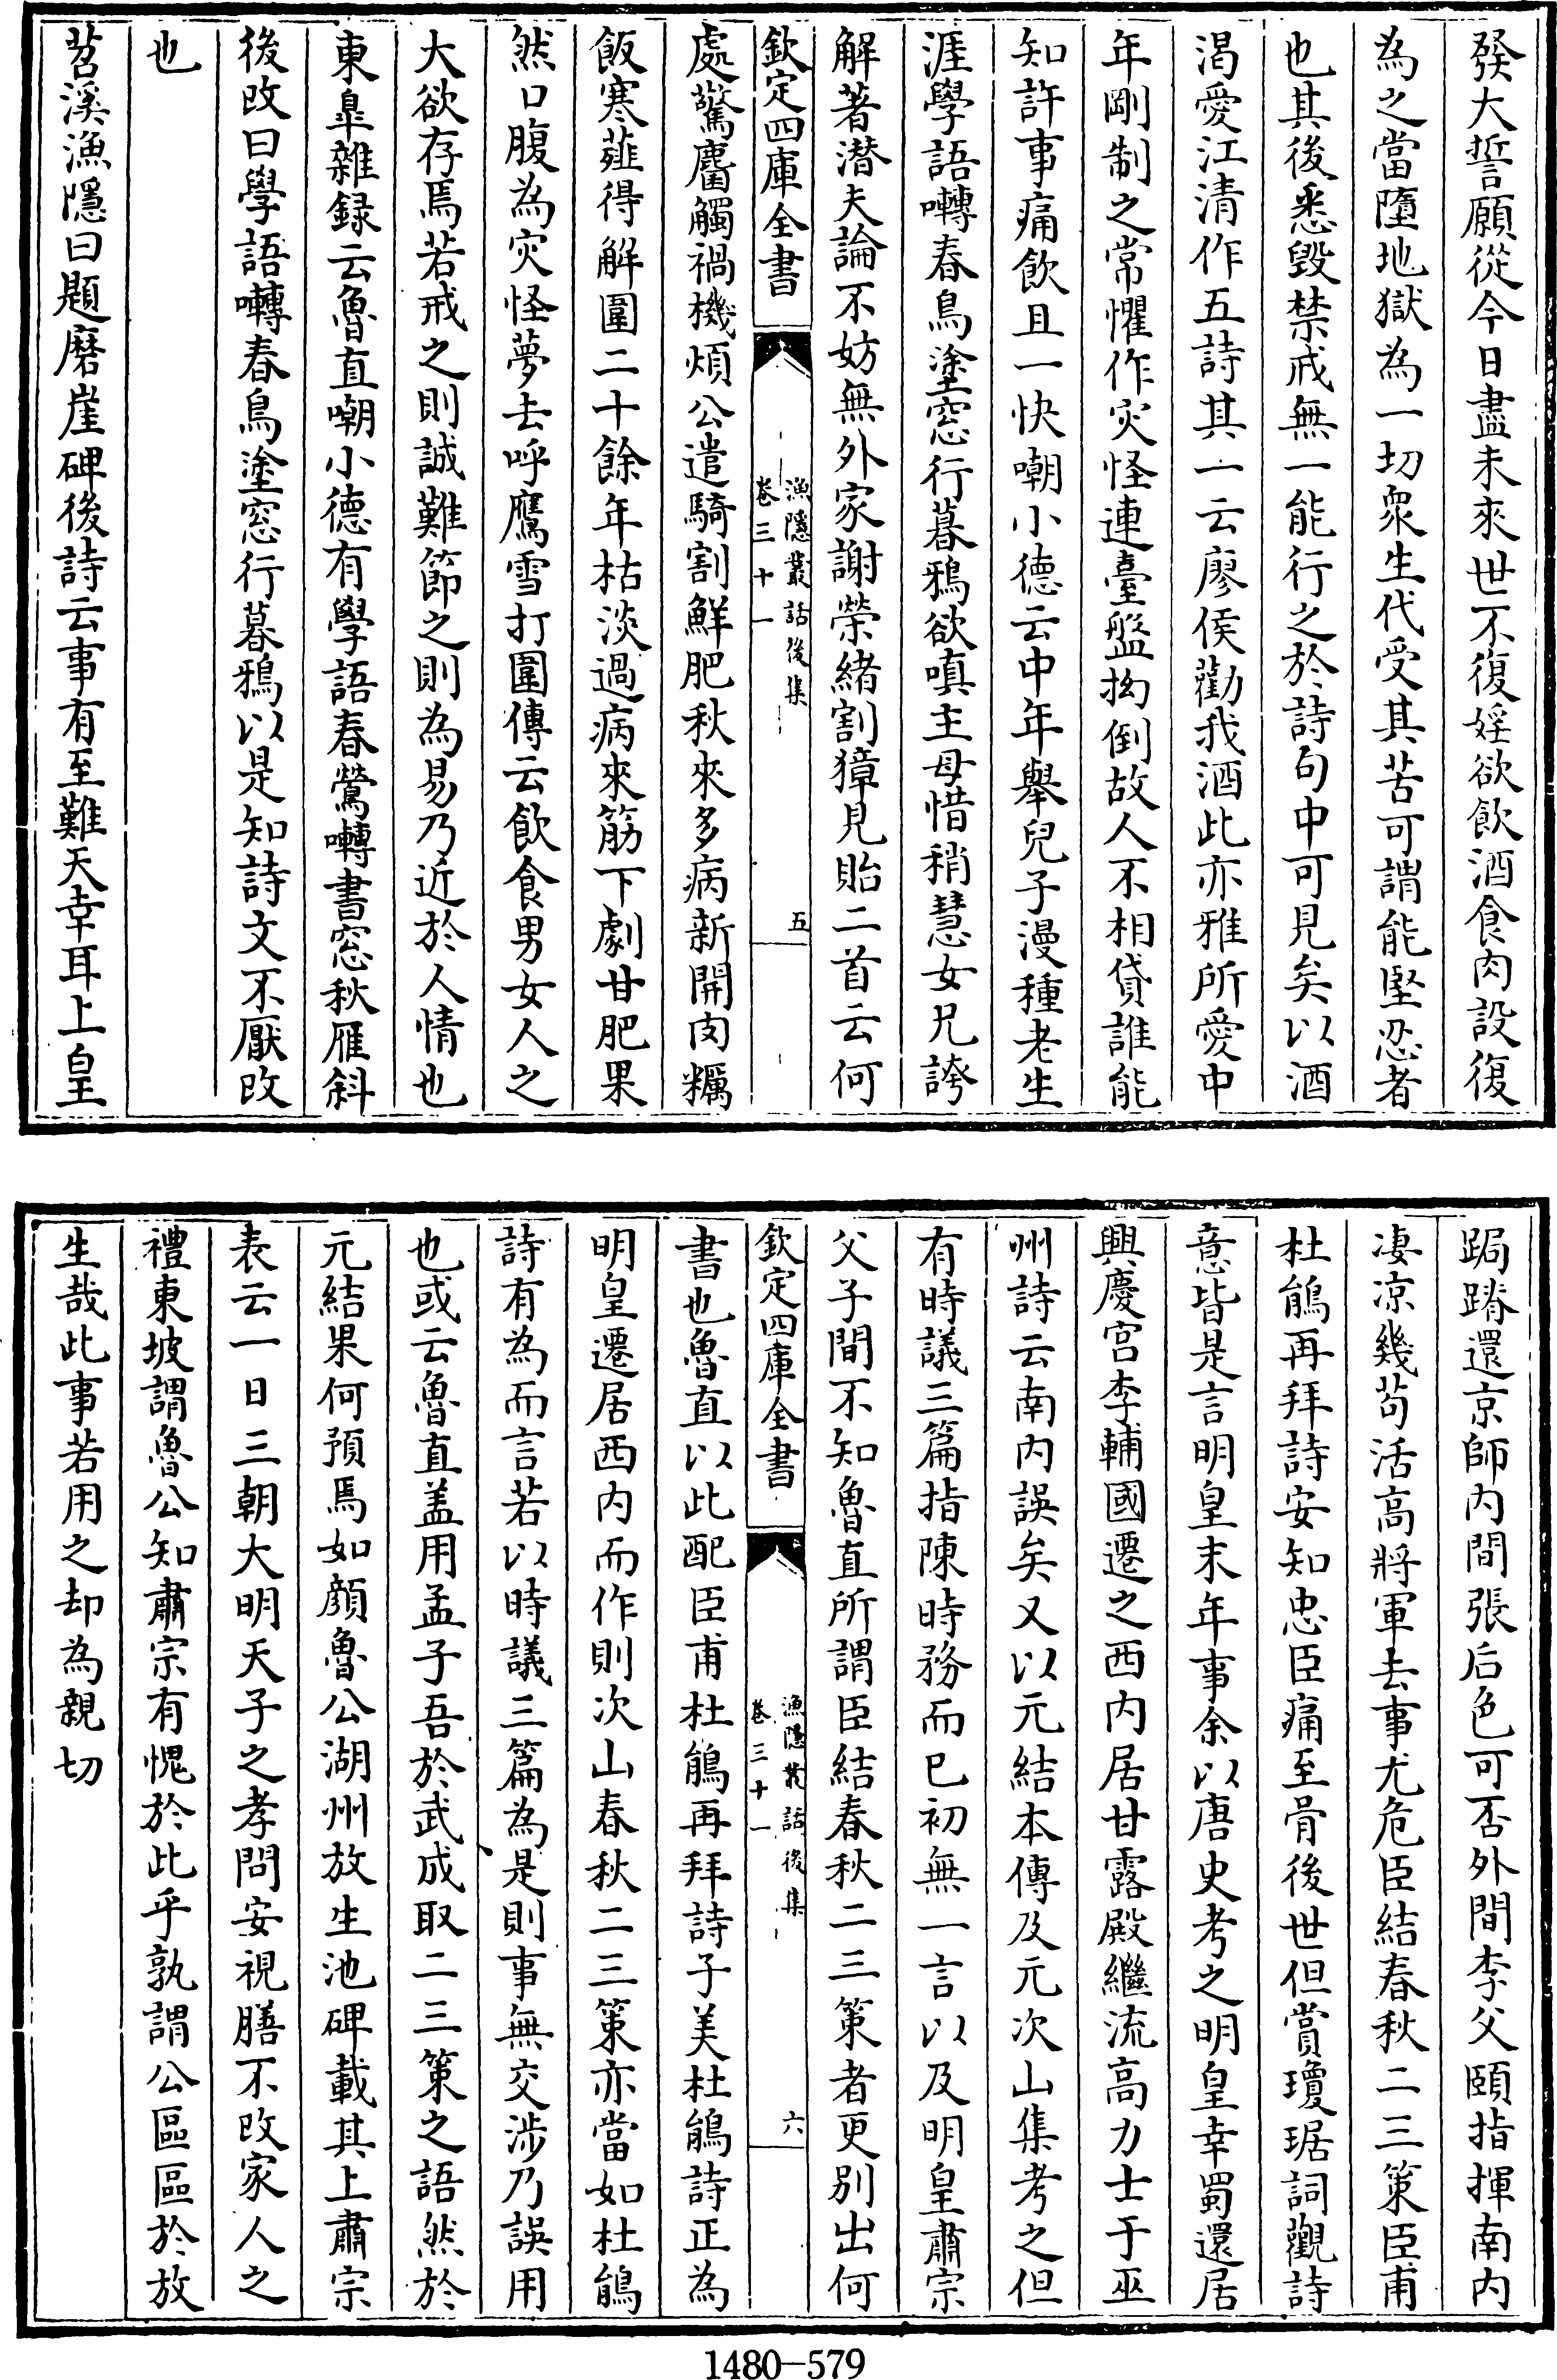 發大誓願從今日盡未來世不復婬欲飲酒食肉設復
為之當墮地獄為一切衆生代受其苦可謂能堅忍者
也其後悉毀禁戒無一能行之於詩句中可見矣以酒
渴愛江清作五詩其一云廖侯勸我酒此亦雅所愛中
年剛制之常懼作灾怪連臺盤拗倒故人不相貸誰能
知許事痛飲且一快嘲小德云中年舉兒子漫種老生
涯學語囀春鳥塗窓行暮鴉欲嗔主母惜稍慧女兄誇
解著潜夫論不妨無外家謝榮緒割獐見貽二首云何
欽定四庫全書
漁隱叢話後集
卷三十一
五
處驚麏觸禍機煩公遣騎割鮮肥秋來多病新開肉糲
飯寒葅得解圍二十餘年枯淡過病來筋下劇甘肥果
然口腹為灾怪夢去呼鷹雪打圍傳云飲食男女人之
大欲存焉若戒之則誠難節之則為易乃近於人情也
東臯雜録云魯直嘲小德有學語春鶯囀書窓秋雁斜
後改曰學語囀春鳥塗窓行暮鴉以是知詩文不厭改
也
苕溪漁隱曰題磨崖碑後詩云事有至難天幸耳上皇
跼蹐還京師内間張后色可否外間李父頤指揮南内
凄凉幾苟活高將軍去事尤危臣結春秋二三策臣甫
杜鵑再拜詩安知忠臣痛至骨後世但賞瓊琚詞觀詩
意皆是言明皇末年事余以唐史考之明皇幸蜀還居
興慶宫李輔國遷之西内居甘露殿繼流高力士于巫
州詩云南内誤矣又以元結本傳及元次山集考之但
有時議三篇指陳時務而已初無一言以及明皇肅宗
父子間不知魯直所謂臣結春秋二三策者更别出何
欽定四庫全書
漁隱叢話後集
卷三十一
六
書也魯直以此配臣甫杜鵑再拜詩子美杜鵑詩正為
明皇遷居西内而作則次山春秋二三策亦當如杜鵑
詩有為而言若以時議三篇為是則事無交涉乃誤用
也或云魯直盖用孟子吾於武成取二三策之語然於
元結果何預焉如顔魯公湖州放生池碑載其上肅宗
表云一日三朝大明天子之孝問安視膳不改家人之
禮東坡謂魯公知肅宗有愧於此乎孰謂公區區於放
生哉此事若用之却為親切
1480-579